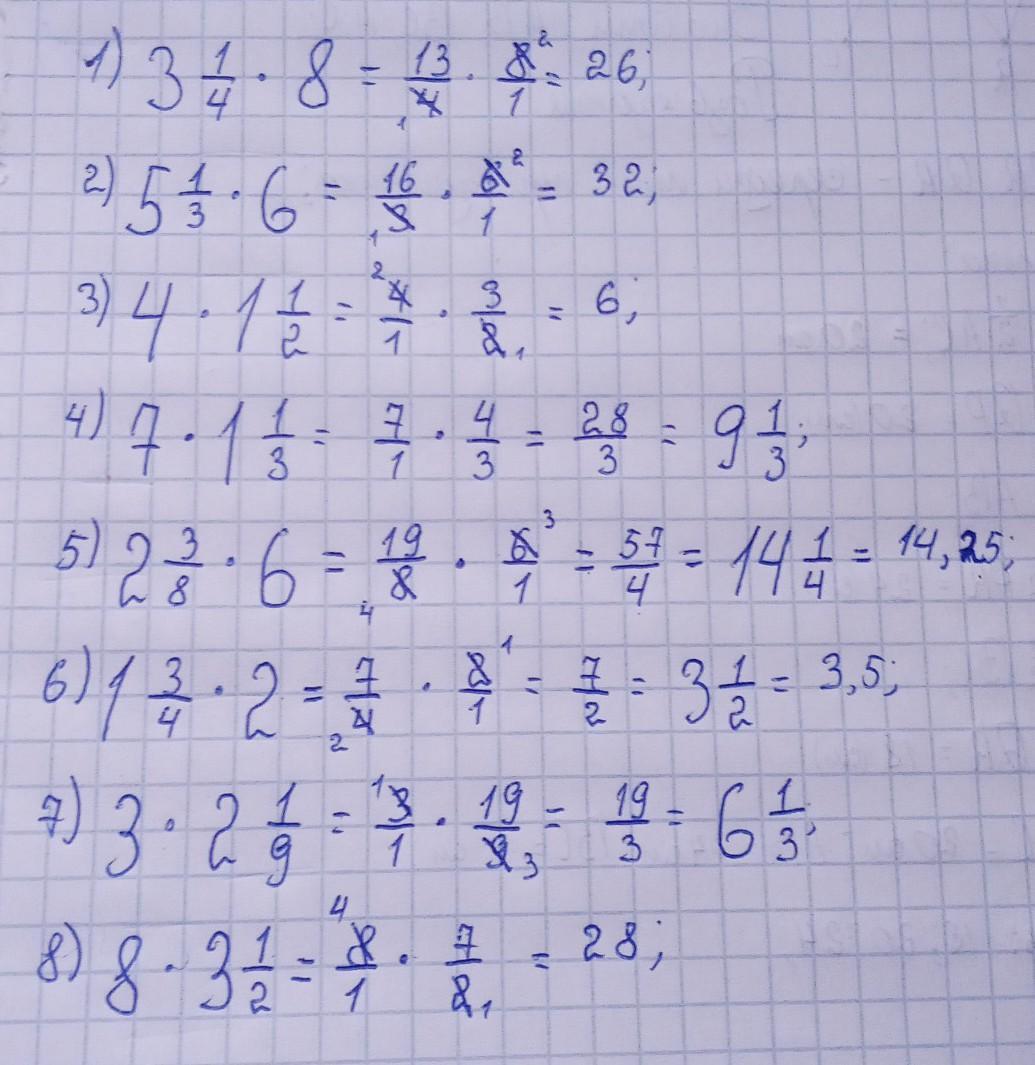 1) 3 1/4 · 8 = 13/4 1 · 8/1 2 = 26;
2) 5 1/3 · 6 = 16/3 1 · 6/1 2 = 32;
3) 4 · 1 1/2 = 2 4/1 · 3/2 1 = 6;
4) 7 · 1 1/3 = 7/1 · 4/3 = 28/3 = 9 1/3;
5) 2 3/8 · 6 = 19/8 4 · 6/1 3 = 57/4 = 14 1/4 = 14,25;
6) 1 3/4 · 2 = 7/4 2 · 2/1 1 = 7/2 = 3 1/2 = 3,5;
7) 3 · 2 1/9 = 1 3/1 · 19/9 3 = 19/3 = 6 1/3;
8) 8 · 3 1/2 = 4 8/1 · 7/2 1 = 28;